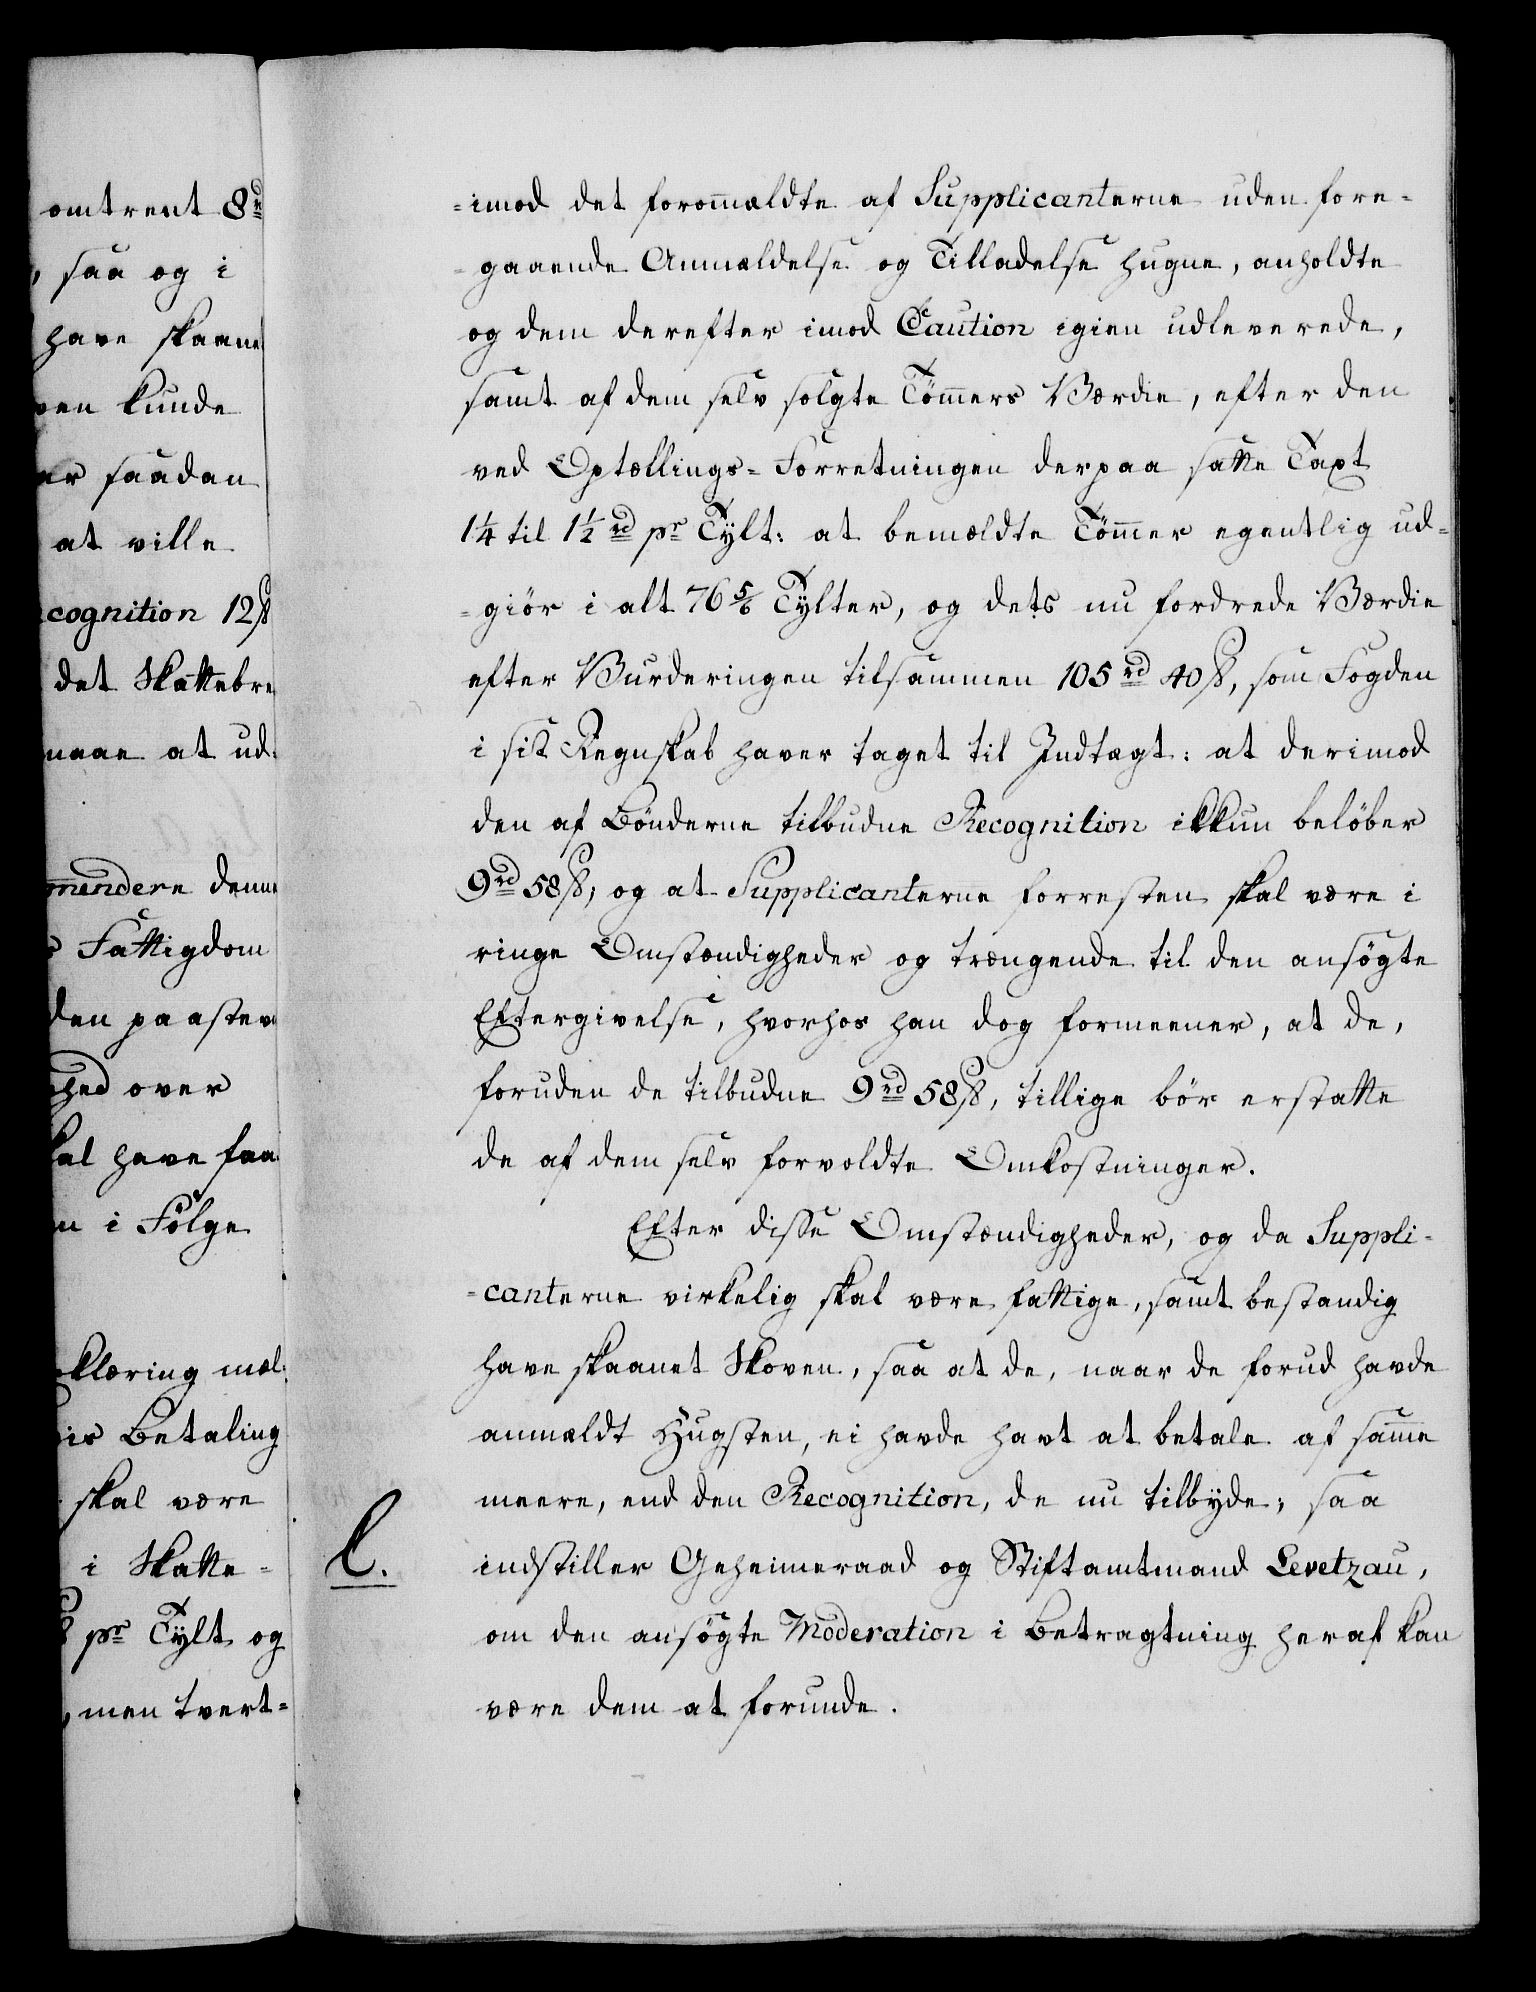 omtrent 8rd
, saa og i
have skaane
ven kunde
er saadan
at ville
cognition 12 ß
det Skattebre
maae at ud:
mendere denne
s Fattigdom
den paastev
hed over
kal have faa
n i Fölge
klæring mæl:
is Betaling
skal være
i Skatte-
ß pr Tylt og
, men tvert-
=imod det forommældte af Supplicanterne uden fore-
-gaaende Anmældelse og Tilladelse hugne, anholdte
og dem derefter imod Caution igien udleverede,
samt af dem selv solgte Tömmers Værdie, efter den
ved Optællings-Forretningen derpaa satte Taxt
1¼ til 1½ rd pr Tylt: at bemældte Tömmer egentlig ud-
=giör i alt 76 5/6 Tylter, og dets nu fordrede Værdie
efter Vurderingen tilsammen 105 rd 40 ß, som Fogden
i sit Regnskab haver taget til Indtægt: at derimod
den af Bönderne tilbudne Recognition ikkun belöber
9 rd 58 ß; og at Supplicanterne forresten skal være i
ringe Omstændigheder og trængende til den ansögte
Eftergivelse, hvorhos han dog formeener, at de,
foruden de tilbudne 9 rd 58 ß, tillige bör erstatte
de af dem selv forvoldte Omkostninger.
Efter disse Omstændigheder, og da Suppli-
=canterne virkelig skal være fattige, samt bestandig
have skaanet Skoven, saa at de, naar de forud havde
anmældt Hugsten, ei havde havt at betale af samme
meere, end den Recognition, de nu tilbyde; saa
l. indstiller Geheimeraad og Stiftamtmand Levetzau,
om den ansögte Moderation i Betragtning heraf kan
være dem at forunde.